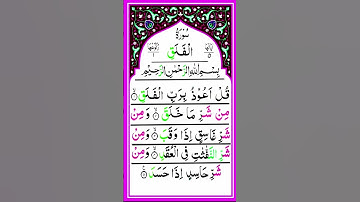 سُوْرَةُ
الْفَلَقِ
بِسْمِ اللّٰهِ الرَّحْمٰنِ الرَّحِيْمِ
قُلْ اَعُوْذُ بِرَبِّ الْفَلَقِ ۙ
مِنْ شَرِّ مَا خَلَقَ ۙ وَمِنْ
شَرِّ غَاسِقٍ اِذَا وَقَبَ ۙ وَمِنْ
شَرِّ النَّفّٰثٰتِ فِی الْعُقَدِ ۙ وَمِنْ
شَرِّ حَاسِدٍ اِذَا حَسَدَ